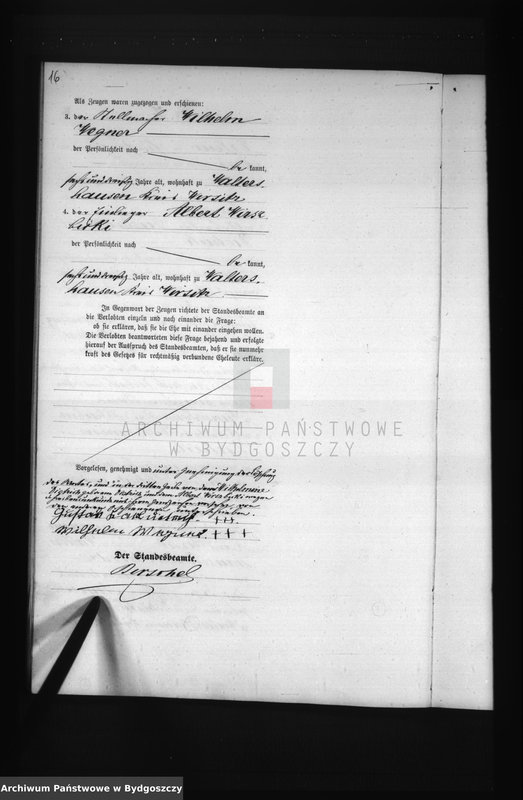 16
Als Zeugen waren zugezogen und erschienen:
3. der Stellmacher Wilhelm
Wegner
der Persönlichkeit nach
be kannt,
sechsunddreißig Jahre alt, wohnhaft zu Walters-
hausen Kreis Wirsitz
4. der Einlieger Albert Wirsz-
bitzki
der Persönlichkeit nach
be kannt,
sechsunddreißig Jahre alt, wohnhaft zu Walters-
hausen Kreis Wirsitz.
In Gegenwart der Zeugen richtete der Standesbeamte an
die Verlobten einzeln und nach einander die Frage:
ob sie erklären, daß sie die Ehe mit einander eingehen wollen.
Die Verlobten beantworteten diese Frage bejahend und erfolgte
hierauf der Ausspruch des Standesbeamten, daß er sie nunmehr
kraft des Gesetzes für rechtmäßig verbundene Eheleute erkläre.
ARCHIWUM PAŃSTWOWE
W BYDGOSZCZY
Vorgelesen, genehmigt und unter Genehmigung der Löschung
von der Wilhelmine
Albert wegen
von
Gustav +++.
Wilhelm Wegner +++
Der Standesbeamte.
Archiwum Państwowe w Bydgoszczy